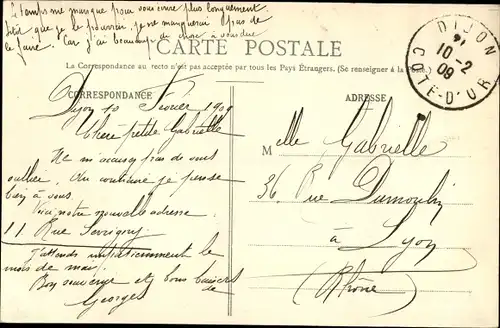 Le temps me manque pour vous écrire plus longuement.
Sitôt que je le pourrai je ne manquerai pas de
le faire. Car j'ai beaucoup de chose à vous dire
CARTE POSTALE
La Correspondance au recto n'est pas acceptée par tous les Pays Étrangers. (Se renseigner à la Poste)
CORRESPONDANCE
Dijon 10 Février 1909
Chère petite Gabrielle
Ne m'accusez pas de vous
oublier. Au contraire je pense
bien à vous.
Voici notre nouvelle adresse
11 Rue Sévigné
J'attends impatiemment le
mois de mai.
Bon souvenir et bons baisers
de
Georges
ADRESSE
Melle Gabrielle
36 Rue Dumoulin
à
Lyon
(Rhône)
DIJON
10-2
09
COTE-D'OR